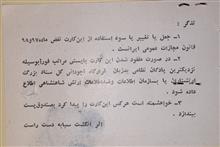 تذکر :
۱ـ جعل یا تغییر یا سوء استفاده از این کارت نقض ماده ۹۸و۹۷
قانون مجازات عمومی ایرانست .
۲ـ در صورت مفقود شدن این کارت بایستی مراتب فورا بوسیله
نزدیکترین پادگان نظامی بمرزبان قرارگاه آجودانی کل ستاد بزرگ
یا سازمان اطلاعات وضد اطلاعات ارتش شاهنشاهی اطلاع
داده شود .
۳ـ خواهشمند است هرکس این کارت را پیدا کرد بصندوق پست
بیندازد .
اثر انگشت سبابه دست راست